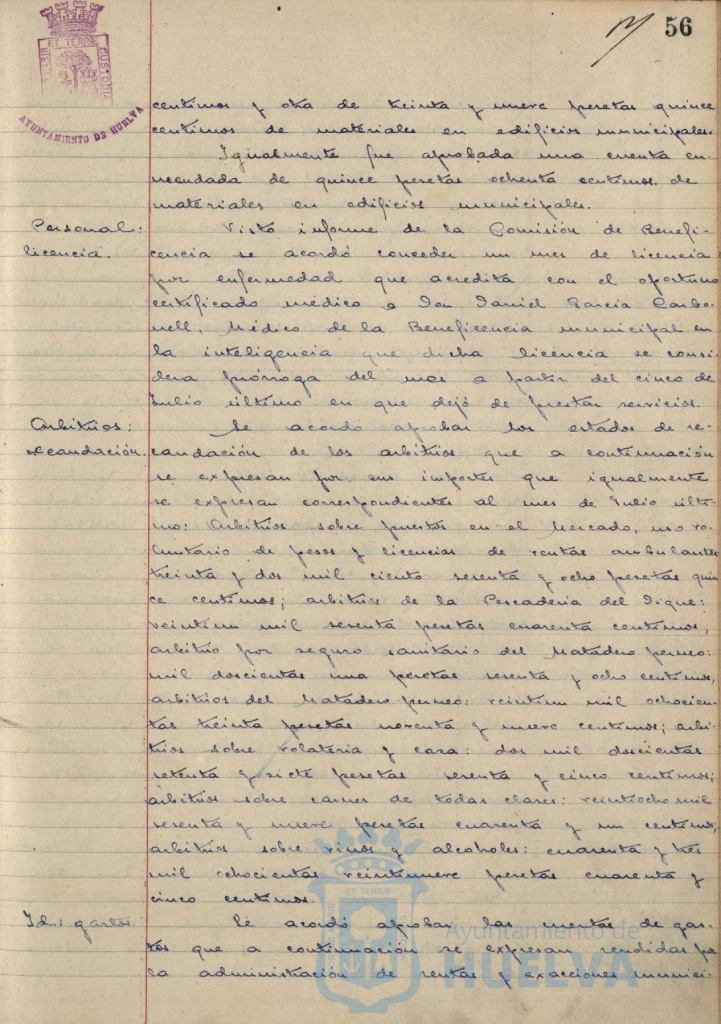 56
PORTUS MARIS ET TERRÆ CUSTODIA
AYUNTAMIENTO DE HUELVA
centimos y otra de treinta y nueve pesetas quince
centimos de materiales en edificios municipales.
Igualmente fue aprobada una cuenta en-
cuadada de quince pesetas ochenta centimos de
materiales en edificios municipales.
Personal:
licencia.
Visto informe de la Comisión de Benefi-
cencia se acordó conceder un mes de licencia
por enfermedad que acredita con el oportuno
certificado médico a Don Daniel Garcia Carbo-
nell, Médico de la Beneficencia municipal en
la inteligencia que dicha licencia se consi-
dera prórroga del mes a partir del cinco de
Julio último en que dejó de prestar servicios.
Arbitrios:
recaudación.
Se acordó aprobar los estados de re-
caudación de los arbitrios que a continuación
se expresan por sus importes que igualmente
se expresan correspondientes al mes de Julio últi-
mo: Arbitrios sobre puestos en el Mercado, uso vo-
luntario de pesos y licencias de ventas ambulantes
treinta y dos mil ciento sesenta y ocho pesetas quin
ce centimos; arbitrios de la Pescaderia del Dique:
veintiun mil sesenta pesetas cuarenta centimos;
arbitrio por seguro sanitario del Matadero porcino:
mil doscientas una pesetas sesenta y ocho centimos;
arbitrios del Matadero porcino: veintiun mil ochocien-
tas treinta pesetas noventa y nueve centimos; arbi-
trios sobre volateria y caza: dos mil doscientas
setenta y siete pesetas sesenta y cinco centimos;
arbitrios sobre carnes de todas clases: veintiocho mil
sesenta y nueve pesetas cuarenta y un centimos;
arbitrios sobre vinos y alcoholes: cuarenta y tres
mil ochocientas veintinueve pesetas cuarenta y
cinco centimos.
Id.: gastos.
Se acordó aprobar las cuentas de gas-
tos que a continuación se expresan rendidas por
la administración de rentas y exacciones munici-
ET TERRÆ
Ayuntamiento de
HUELVA